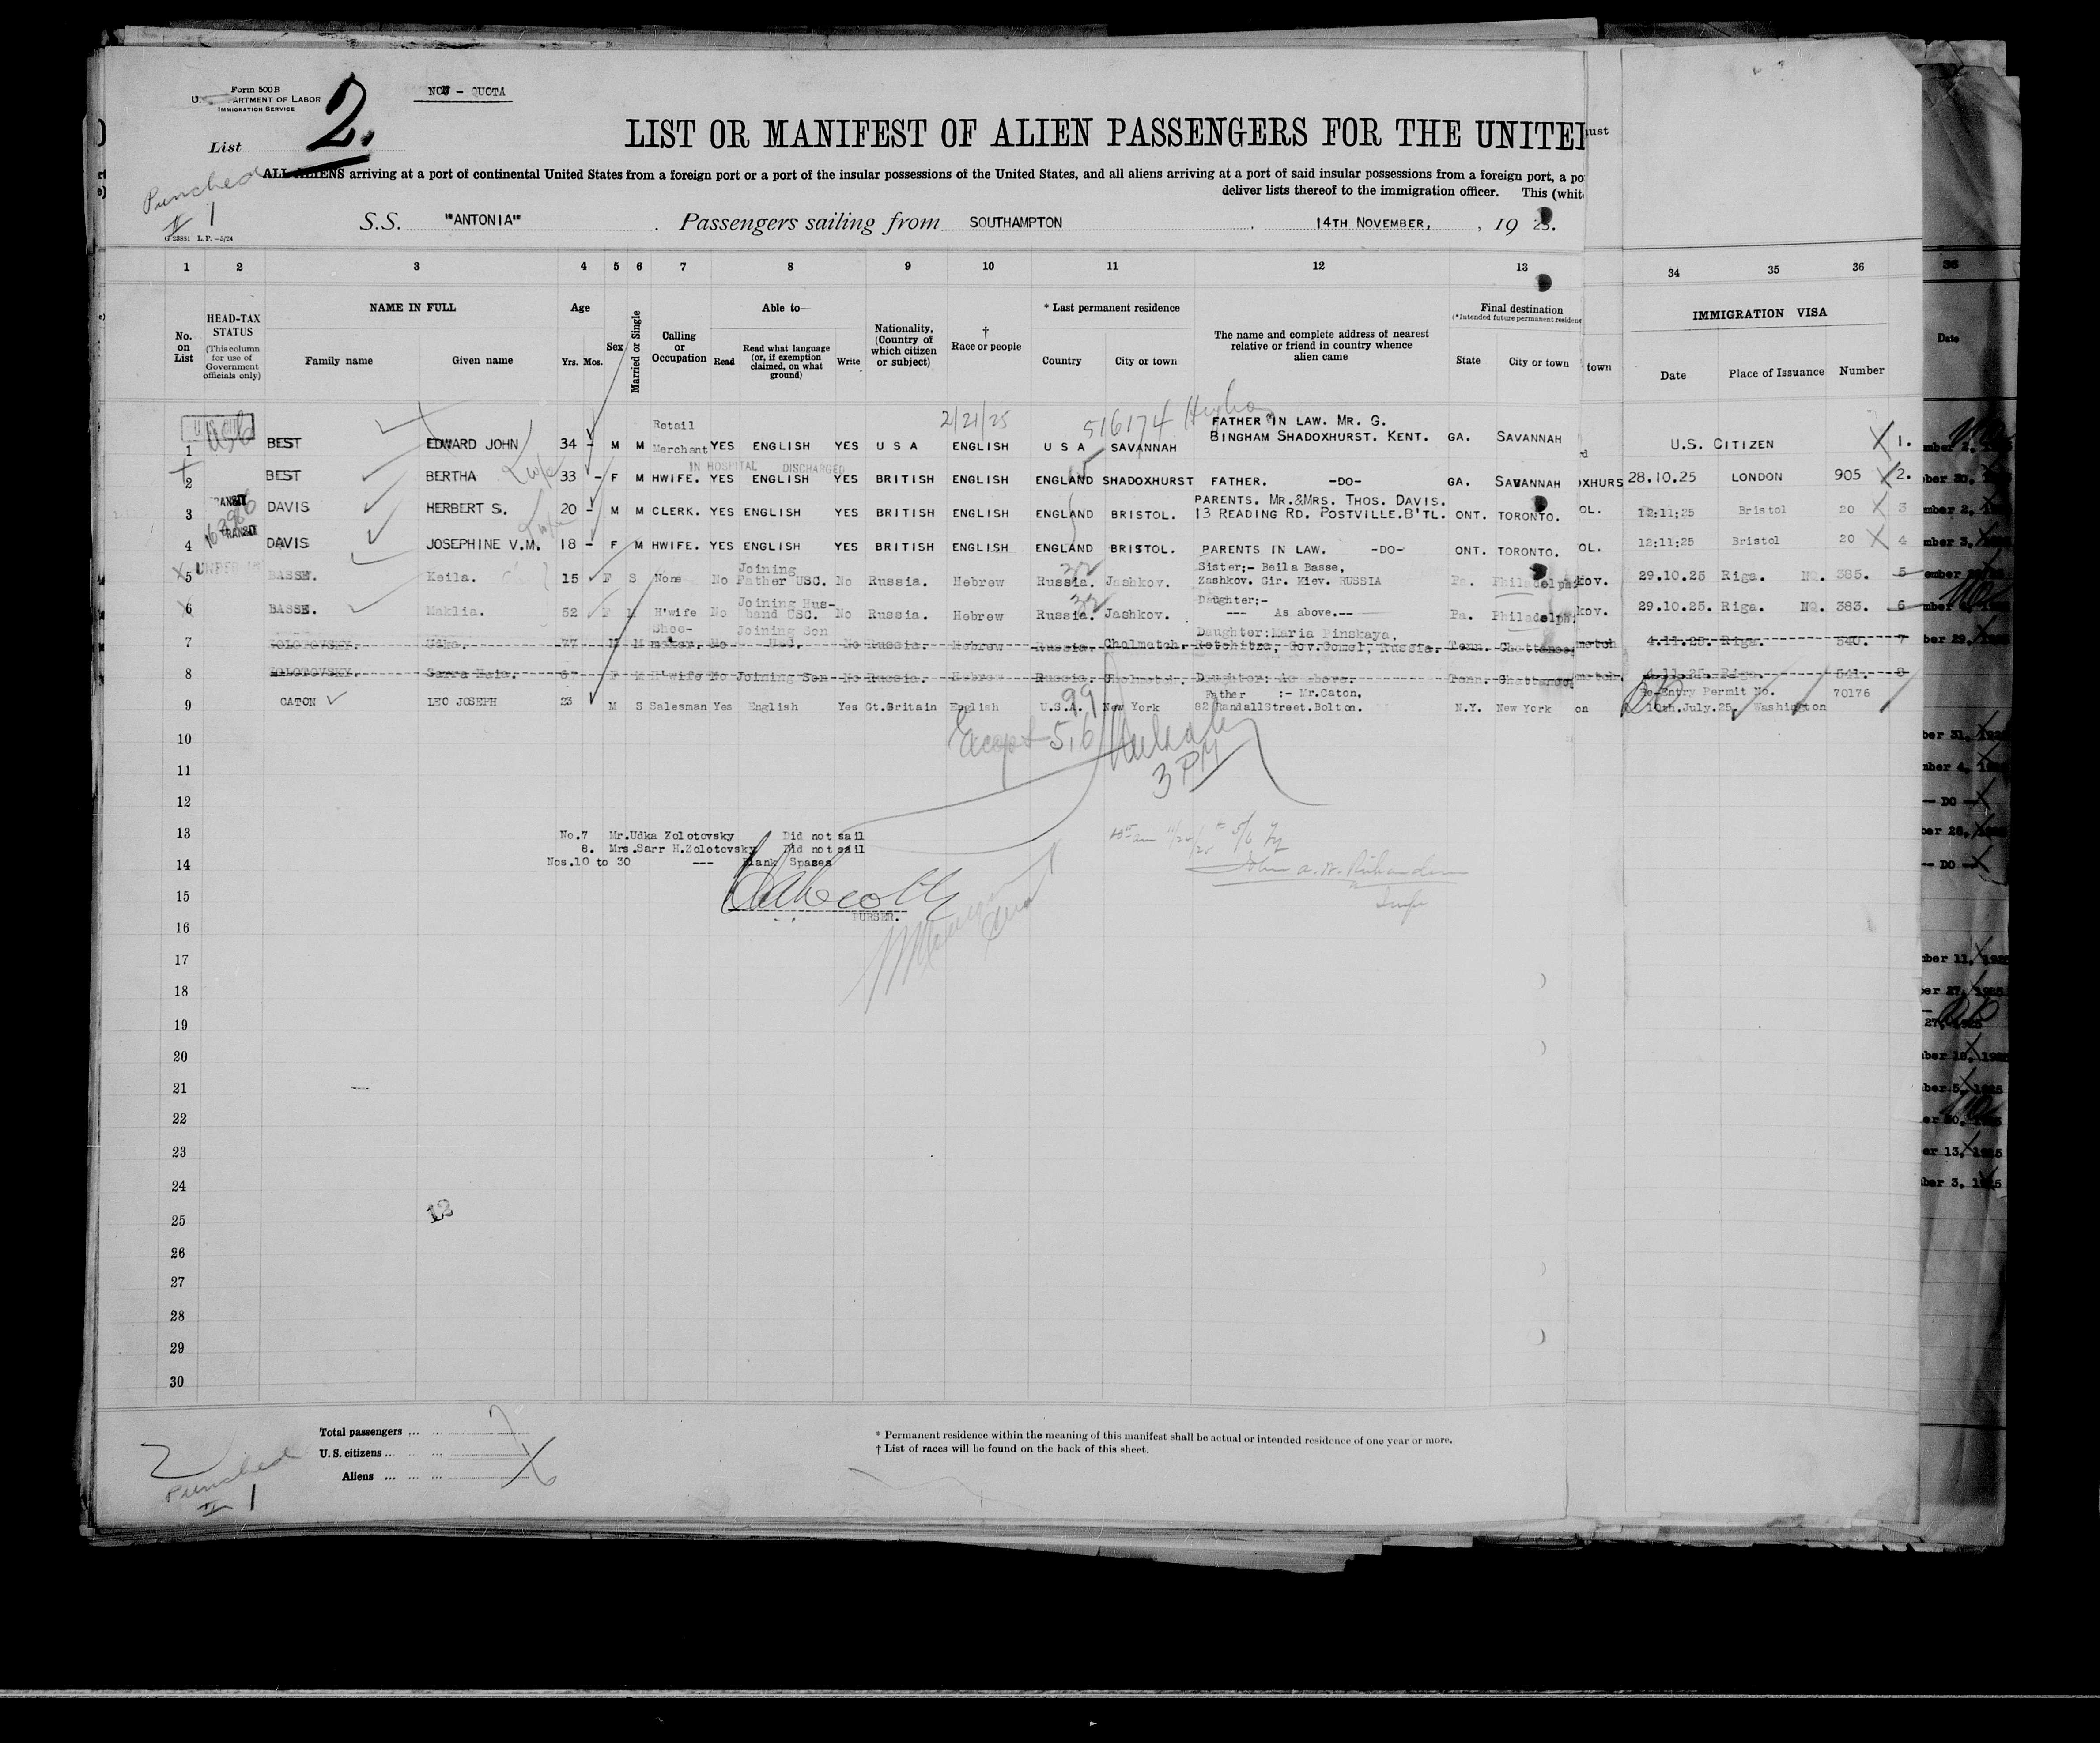 Form 500 B
ARTMENT OF LABOR
IMMIGRATION SERVICE
NON - QUOTA
List 2.
LIST OR MANIFEST OF ALIEN PASSENGERS FOR THE UNITE
ust
Punched
ALL ALIENS arriving at a port of continental United States from a foreign port or a port of the insular possessions of the United States, and all aliens arriving at a port of said insular possessions from a foreign port, a po
deliver lists thereof to the immigration officer. This (whit
S.S. "ANTONIA" Passengers sailing from SOUTHAMPTON 14TH NOVEMBER, 19 25.
G 23881 L.P.—5/24
1 2 3 4 5 6 7 8 9 10 11 12 13 34 35 36 36
No. on List
HEAD-TAX STATUS (This column for use of Government officials only)
NAME IN FULL
Family name Given name
Age
Yrs. Mos.
Sex
Married or Single
Calling or Occupation
Able to—
Read Read what language (or, if exemption claimed, on what ground) Write
Nationality, (Country of which citizen or subject)
† Race or people
* Last permanent residence
Country City or town
The name and complete address of nearest relative or friend in country whence alien came
Final destination
(*Intended future permanent residenc
State City or town town
IMMIGRATION VISA
Date Place of Issuance Number
Date
2/21/25 516174
1 BEST EDWARD JOHN 34 - M M Retail Merchant YES ENGLISH YES U S A ENGLISH U S A SAVANNAH FATHER IN LAW. MR. G. BINGHAM SHADOXHURST. KENT. GA. SAVANNAH U.S. CITIZEN 1.
IN HOSPITAL DISCHARGED
2 BEST BERTHA 33 - F M HWIFE. YES ENGLISH YES BRITISH ENGLISH ENGLAND SHADOXHURST FATHER. -DO- GA. SAVANNAH OXHURS 28.10.25 LONDON 905 2.
3 DAVIS HERBERT S. 20 - M M CLERK. YES ENGLISH YES BRITISH ENGLISH ENGLAND BRISTOL. PARENTS. MR.&MRS. THOS. DAVIS. 13 READING RD. POSTVILLE.B'TL. ONT. TORONTO. OL. 12:11:25 Bristol 20 3
4 DAVIS JOSEPHINE V.M. 18 - F M HWIFE. YES ENGLISH YES BRITISH ENGLISH ENGLAND BRISTOL. PARENTS IN LAW. -DO- ONT. TORONTO. OL. 12:11:25 Bristol 20 4
5 BASSE. Keila. 15 F S None No Joining Father USC. No Russia. Hebrew Russia. Jashkov. Sister;- Beila Basse, Zashkov. Gir. Kiev. RUSSIA Pa. Philadelph kov. 29.10.25 Riga. No. 385. 5
6 BASSE. Maklia. 52 F M H'wife No Joining Hus-band USC. No Russia. Hebrew Russia. Jashkov. Daughter:- --- As above.-- Pa. Philadelph kov. 29.10.25. Riga. No. 383. 6
7 ZOLOTOVSKY. Udka. M M Shoe-maker. No Joining Son No Russia. Hebrew Russia. Cholmetch. Daughter:Maria Pinskaya, Retchitza, Gov.Gomel, Russia. Tenn. Chattanoo metch 4.11.25. Riga. 540. 7
8 ZOLOTOVSKY. Sarra Haia. F M H'wife No Joining Son No Russia. Hebrew Russia. Cholmetch. Daughter: As above. Tenn. Chattanoo metch. 4.11.25. Riga. 541. 8
9 CATON LEO JOSEPH 23 M S Salesman Yes English Yes Gt.Britain English U.S.A. New York Father :- Mr.Caton, 82 RandallStreet.Bolton. N.Y. New York on Re-Entry Permit No. 70176 10th.July.25. Washington
10
Except 5,6
11
3 PM
12
13
No.7 Mr.Udka Zolotovsky Did not sail
8. Mrs.Sarr H.Zolotovsky Did not sail
14
Nos.10 to 30 --- Blank Spaces
15
PURSER.
16
17
18
19
20
21
22
23
24
25 12
26
27
28
29
30
Total passengers ... 7
U. S. citizens ...
Aliens ...
* Permanent residence within the meaning of this manifest shall be actual or intended residence of one year or more.
† List of races will be found on the back of this sheet.
2
Punched